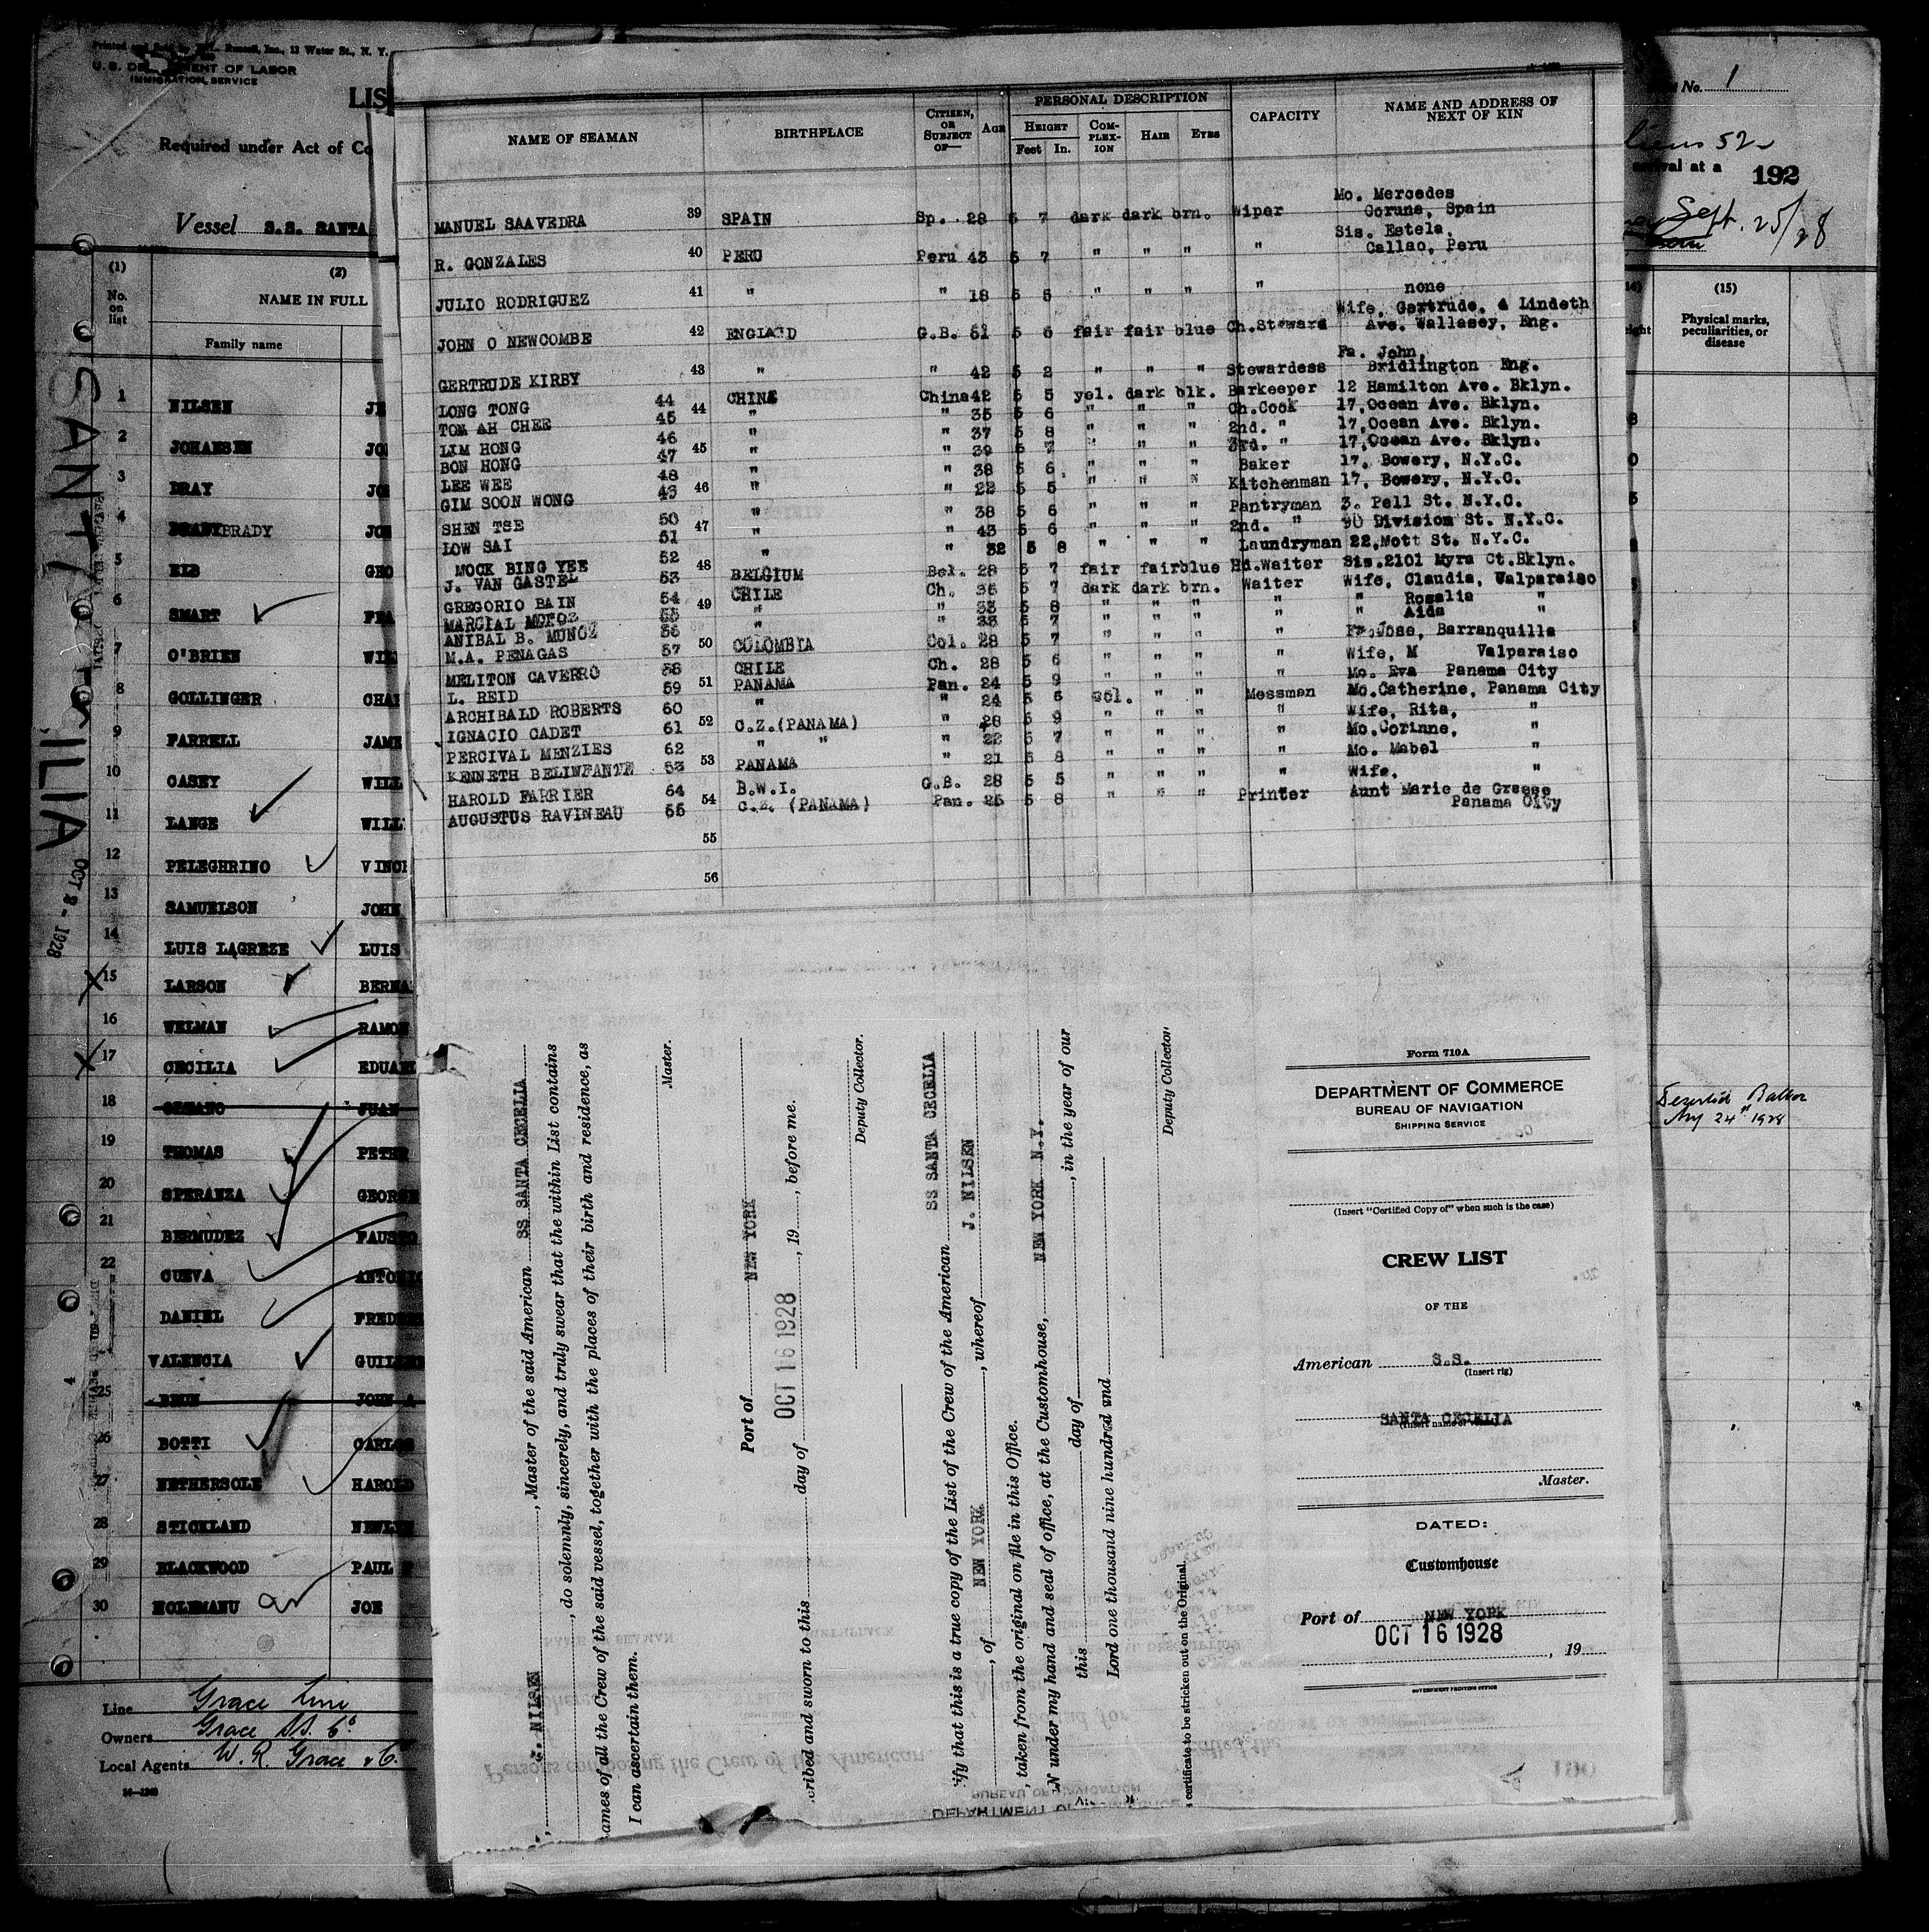 U. S. DEPARTMENT OF LABOR
IMMIGRATION SERVICE
LIS
Required under Act of Co
Vessel S.S. SANTA
(1) (2)
No. on list NAME IN FULL
Family name
1 NILSEN JE
2 JOHANSEN JO
3 DRAY JO
4 BRADY JOH
5 ELB GEO
6 SMART FRA
7 O'BRIEN WIL
8 GOLLINGER CHA
9 FARRELL JAME
10 CASEY WILL
11 LANGE WILL
12 PELEGHRINO VINC
13 SAMUELSON JOHN
14 LUIS LAGREZE LUIS
15 LARSON BERNA
16 WELMAN RAMON
17 CECILIA EDUAR
18 JUAN
19 THOMAS PETER
20 SPERANZA GEORGE
21 BERMUDEZ FAUSTO
22 CUEVA ANTONIO
DANIEL FRED
VALENCIA GUILLE
25 JOHN A
26 BOTTI CARLOS
27 NETHERSOLE HAROLD
28 STICKLAND
29 BLACKWOOD PAUL
30 HOLEMANU JOE
Line Grace Line
Owners Grace S.S. Co
Local Agents W. R. Grace & Co.
OCT 2 - 1928
NAME OF SEAMAN
BIRTHPLACE
CITIZEN, OR SUBJECT OF—
AGE
PERSONAL DESCRIPTION
HEIGHT Feet In.
COMPLEX-ION
HAIR
EYES
CAPACITY
NAME AND ADDRESS OF NEXT OF KIN
MANUEL SAAVEDRA 39 SPAIN Sp. 28 5 7 dark dark brn. Wiper Mo. Mercedes Coruna, Spain
R. GONZALES 40 PERU Peru 43 5 7 " " " " Sis. Estela, Callao, Peru
JULIO RODRIGUEZ 41 " " 18 5 5 " " " " none
JOHN O NEWCOMBE 42 ENGLAND G.B. 51 5 6 fair fair blue Ch.Steward Wife, Gertrude, 4 Lindeth Ave. Wallasey, Eng.
GERTRUDE KIRBY 43 " " 42 5 2 " " " Stewardess Fa. John, Bridlington Eng.
LONG TONG 44 CHINA China 42 5 5 yel. dark blk. Barkeeper 12 Hamilton Ave. Bklyn.
TOM AH CHEE 45 " " 35 5 6 " " " Ch.Cook 17, Ocean Ave. Bklyn.
LIM HONG 46 " " 37 5 8 " " " 2nd. " 17, Ocean Ave. Bklyn.
BON HONG 47 " " 39 5 7 " " " 3rd. " 17, Ocean Ave. Bklyn.
LEE WEE 48 " " 38 5 6 " " " Baker 17, Bowery, N.Y.C.
GIM SOON WONG " " 22 5 5 " " " Kitchenman 17, Bowery, N.Y.C.
SHEN TSE 50 " " 38 5 6 " " " Pantryman 3. Pell St. N.Y.C.
LOW SAI 51 " " 43 5 6 " " " 2nd. " 90 Division St. N.Y.C.
MOCK BING YEE 52 " " 32 5 8 " " " Laundryman 22, Mott St. N.Y.C.
J. VAN GASTEL 53 BELGIUM Bel. 28 5 7 fair fair blue Hd.Waiter Sis. 2101 Myra Ct. Bklyn.
GREGORIO BAIN 54 CHILE Ch. 35 5 7 dark dark brn. Waiter Wife, Claudia, Valparaiso
MARCIAL 55 " " 33 5 8 " " " " " Rosalia "
ANIBAL B. MUNOZ 56 " " 33 5 7 " " " " " Aida "
M.A. PENAGAS 57 COLOMBIA Col. 28 5 7 " " " " Fa. Jose, Barranquilla
MELITON CAVERRO 58 CHILE Ch. 28 5 6 " " " " Wife, M Valparaiso
L. REID 59 PANAMA Pan. 24 5 9 " " " " Mo. Eva Panama City
ARCHIBALD ROBERTS 60 " " 24 5 6 col. " " Messman Mo. Catherine, Panama City
IGNACIO CADET 61 C.Z.(PANAMA) " 28 5 9 " " " " Wife, Rita, "
PERCIVAL MENZIES 62 " " " 22 5 7 " " " " Mo. Corinne, "
KENNETH BELINFANTE 63 PANAMA " 21 5 8 " " " " Mo. Mabel "
HAROLD FARRIER 64 B.W.I. G.B. 28 5 5 " " " " Wife, "
AUGUSTUS RAVINEAU 65 C.Z. (PANAMA) Pan. 25 5 8 " " " Printer Aunt Marie de Grasse Panama City
44
45
46
47
48
49
50
51
52
53
54
55
56
J. NILSEN, Master of the said American SS SANTA CECELIA
, do solemnly, sincerely, and truly swear that the within List contains
ames of all the Crew of the said vessel, together with the places of their birth and residence, as
I can ascertain them.
Master.
Port of NEW YORK
cribed and sworn to this day of OCT 16 1928, 19 , before me.
Deputy Collector.
ify that this is a true copy of the List of the Crew of the American SS SANTA CECELIA
, of NEW YORK, whereof J. NILSEN
, taken from the original on file in this Office.
N under my hand and seal of office, at the Customhouse, NEW YORK N.Y.
this day of , in the year of our
Lord one thousand nine hundred and
Deputy Collector
certificate to be stricken out on the Original
Form 710A
DEPARTMENT OF COMMERCE
BUREAU OF NAVIGATION
SHIPPING SERVICE
(Insert "Certified Copy of" when such is the case)
CREW LIST
OF THE
American S.S.
(Insert rig)
SANTA CECELIA
Master.
DATED:
Customhouse
Port of NEW YORK
OCT 16 1928
, 19
GOVERNMENT PRINTING OFFICE
No. 1
52
arrival at a 192
Sept. 25/28
(15)
Physical marks, peculiarities, or disease
24th 1928